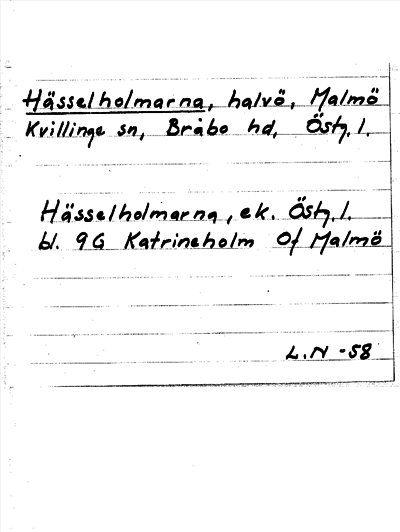 Hässelholmarna, halvö, Malmö
Kvillinge sn, Bråbo hd, Östg. l.
Hässelholmarna, ek. Östg. l.
bl. 9G Katrineholm Of Malmö
L.N -58